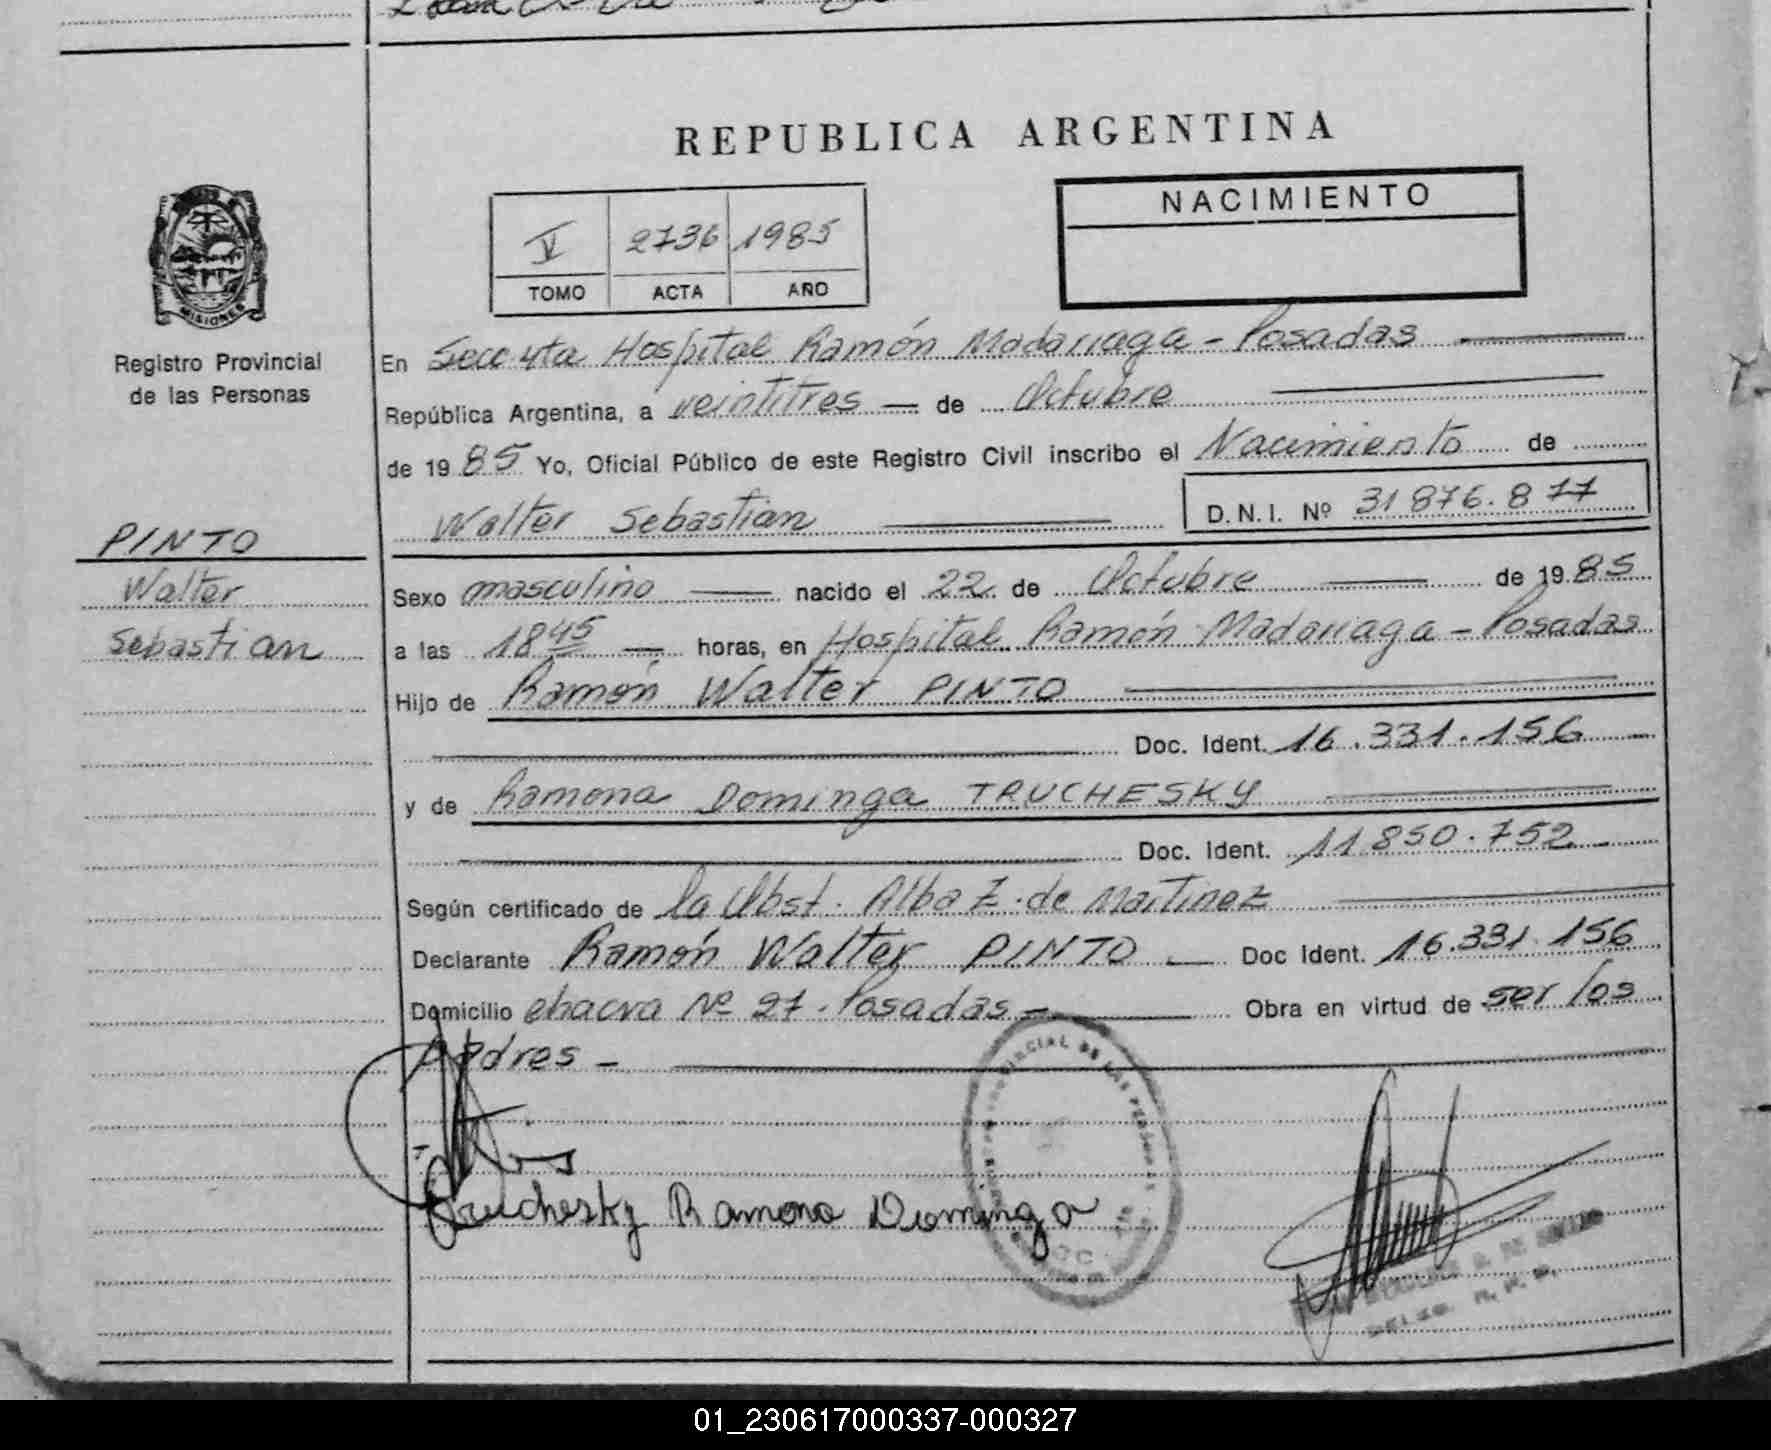 REPUBLICA ARGENTINA
NACIMIENTO
V 2736 1985
TOMO ACTA AÑO
MISIONES
Registro Provincial
de las Personas
En Secc 4ta Hospital Ramón Madariaga - Posadas
República Argentina, a veintitres — de Octubre
de 1985 Yo, Oficial Público de este Registro Civil inscribo el Nacimiento de
Walter Sebastian D.N.I. Nº 31876.877
PINTO
Walter
Sebastian
Sexo masculino nacido el 22 de Octubre de 1985
a las 18 45 — horas, en Hospital Ramón Madariaga - Posadas
Hijo de Ramón Walter PINTO
Doc. Ident. 16.331.156
y de Ramona Dominga TRUCHESKY
Doc. Ident. 11850.752
Según certificado de la Obst. Alba Z. de Martinez
Declarante Ramón Walter PINTO — Doc Ident. 16.331.156
Domicilio chacra Nº 27 - Posadas - Obra en virtud de ser los
padres -
Truchesky Ramona Dominga
01_230617000337-000327